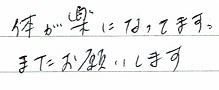 体が楽になってます。
またお願いします